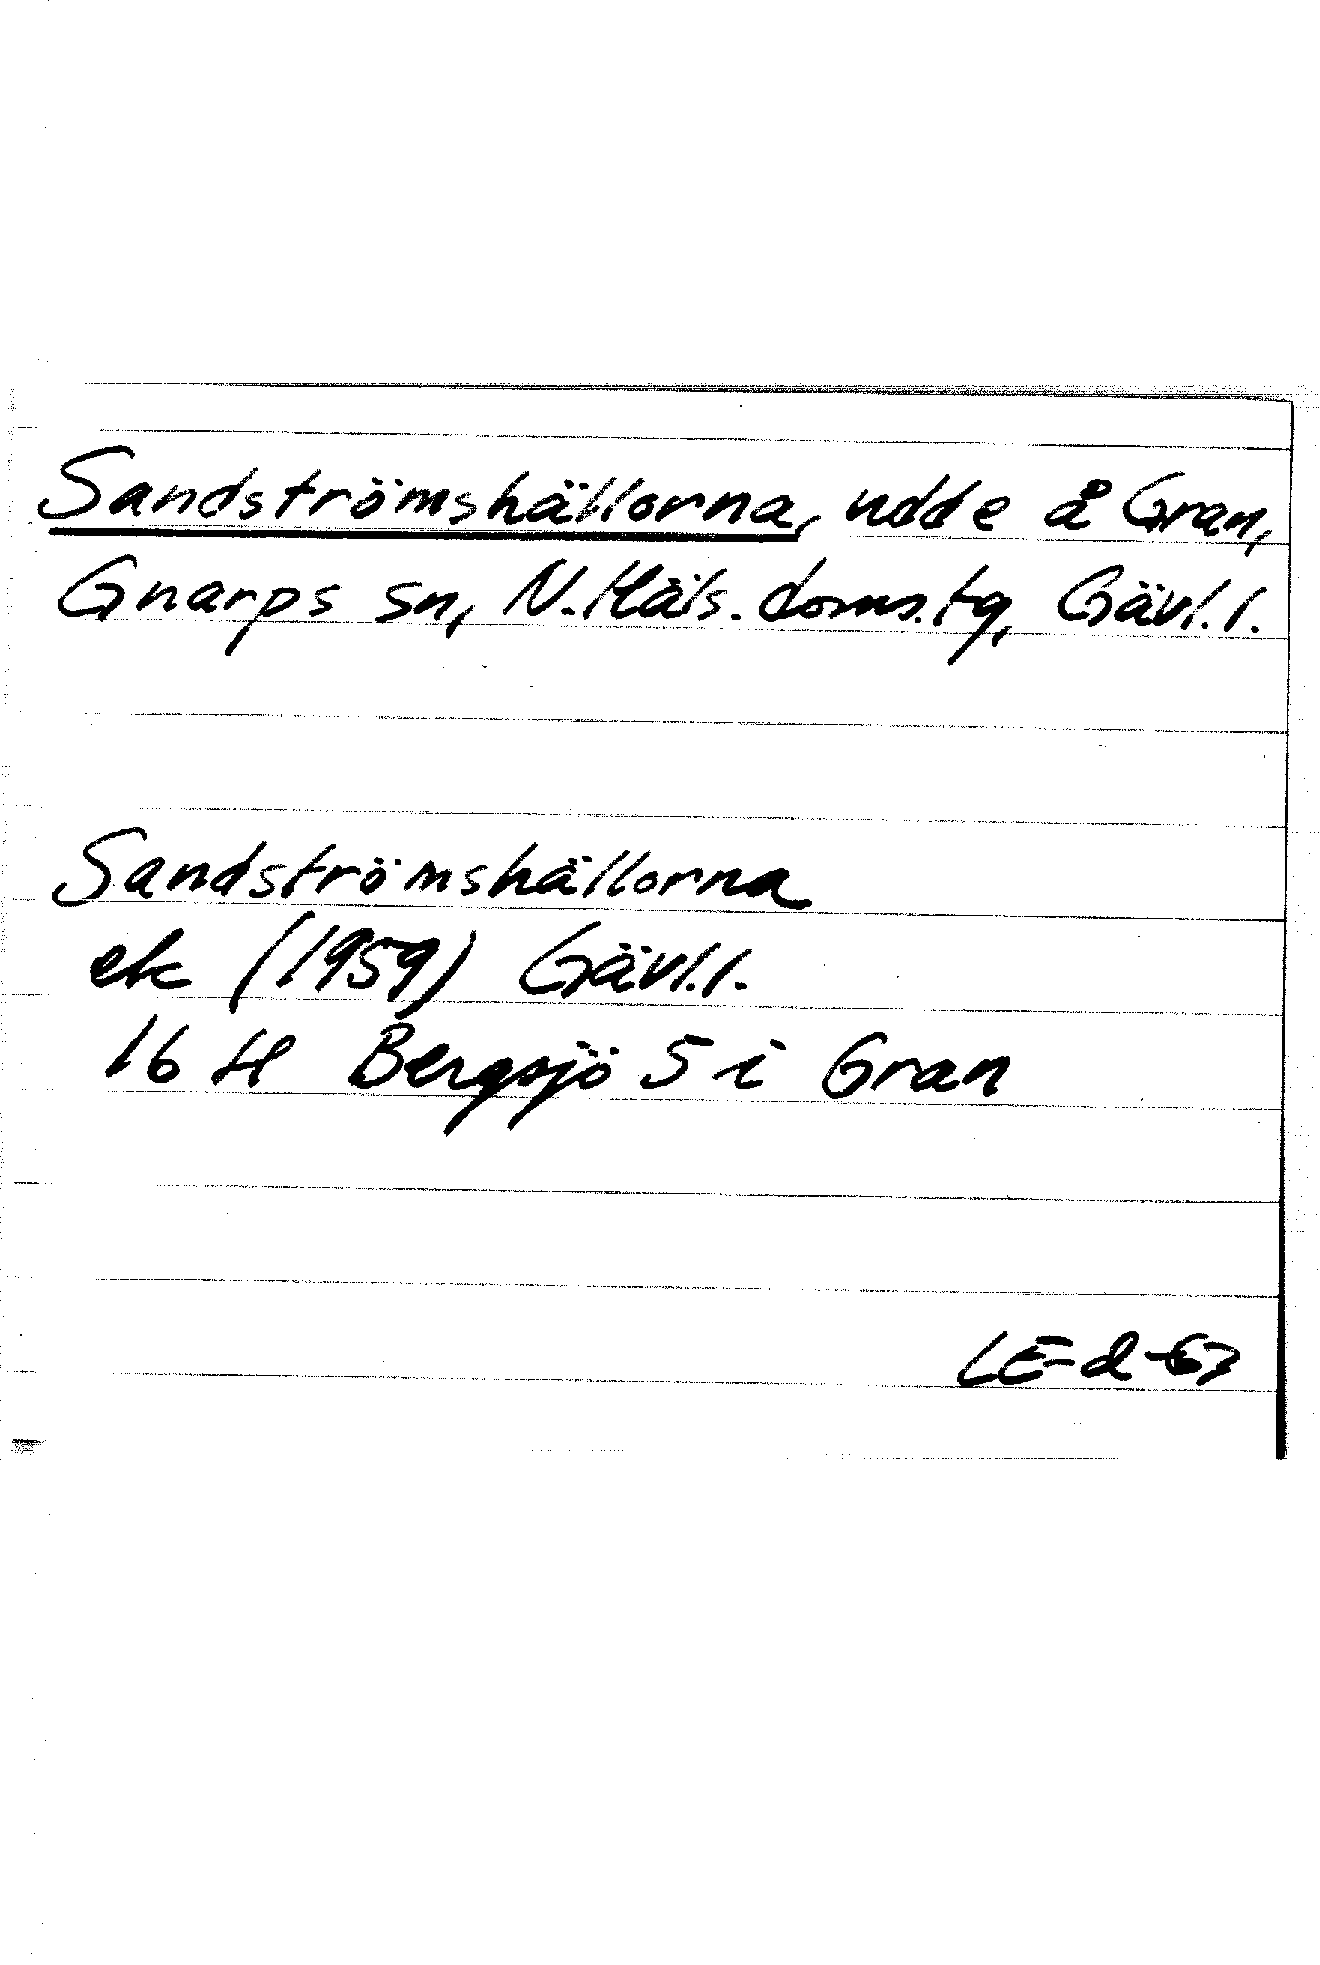 Sandströmshällorna, udde å Gran,
Gnarps sn, N. Häls. doms.tg, Gävl. l.
Sandströmshällorna
ek (1959) Gävl. l.
16 H Bergsjö 5 i Gran
LE-d-67